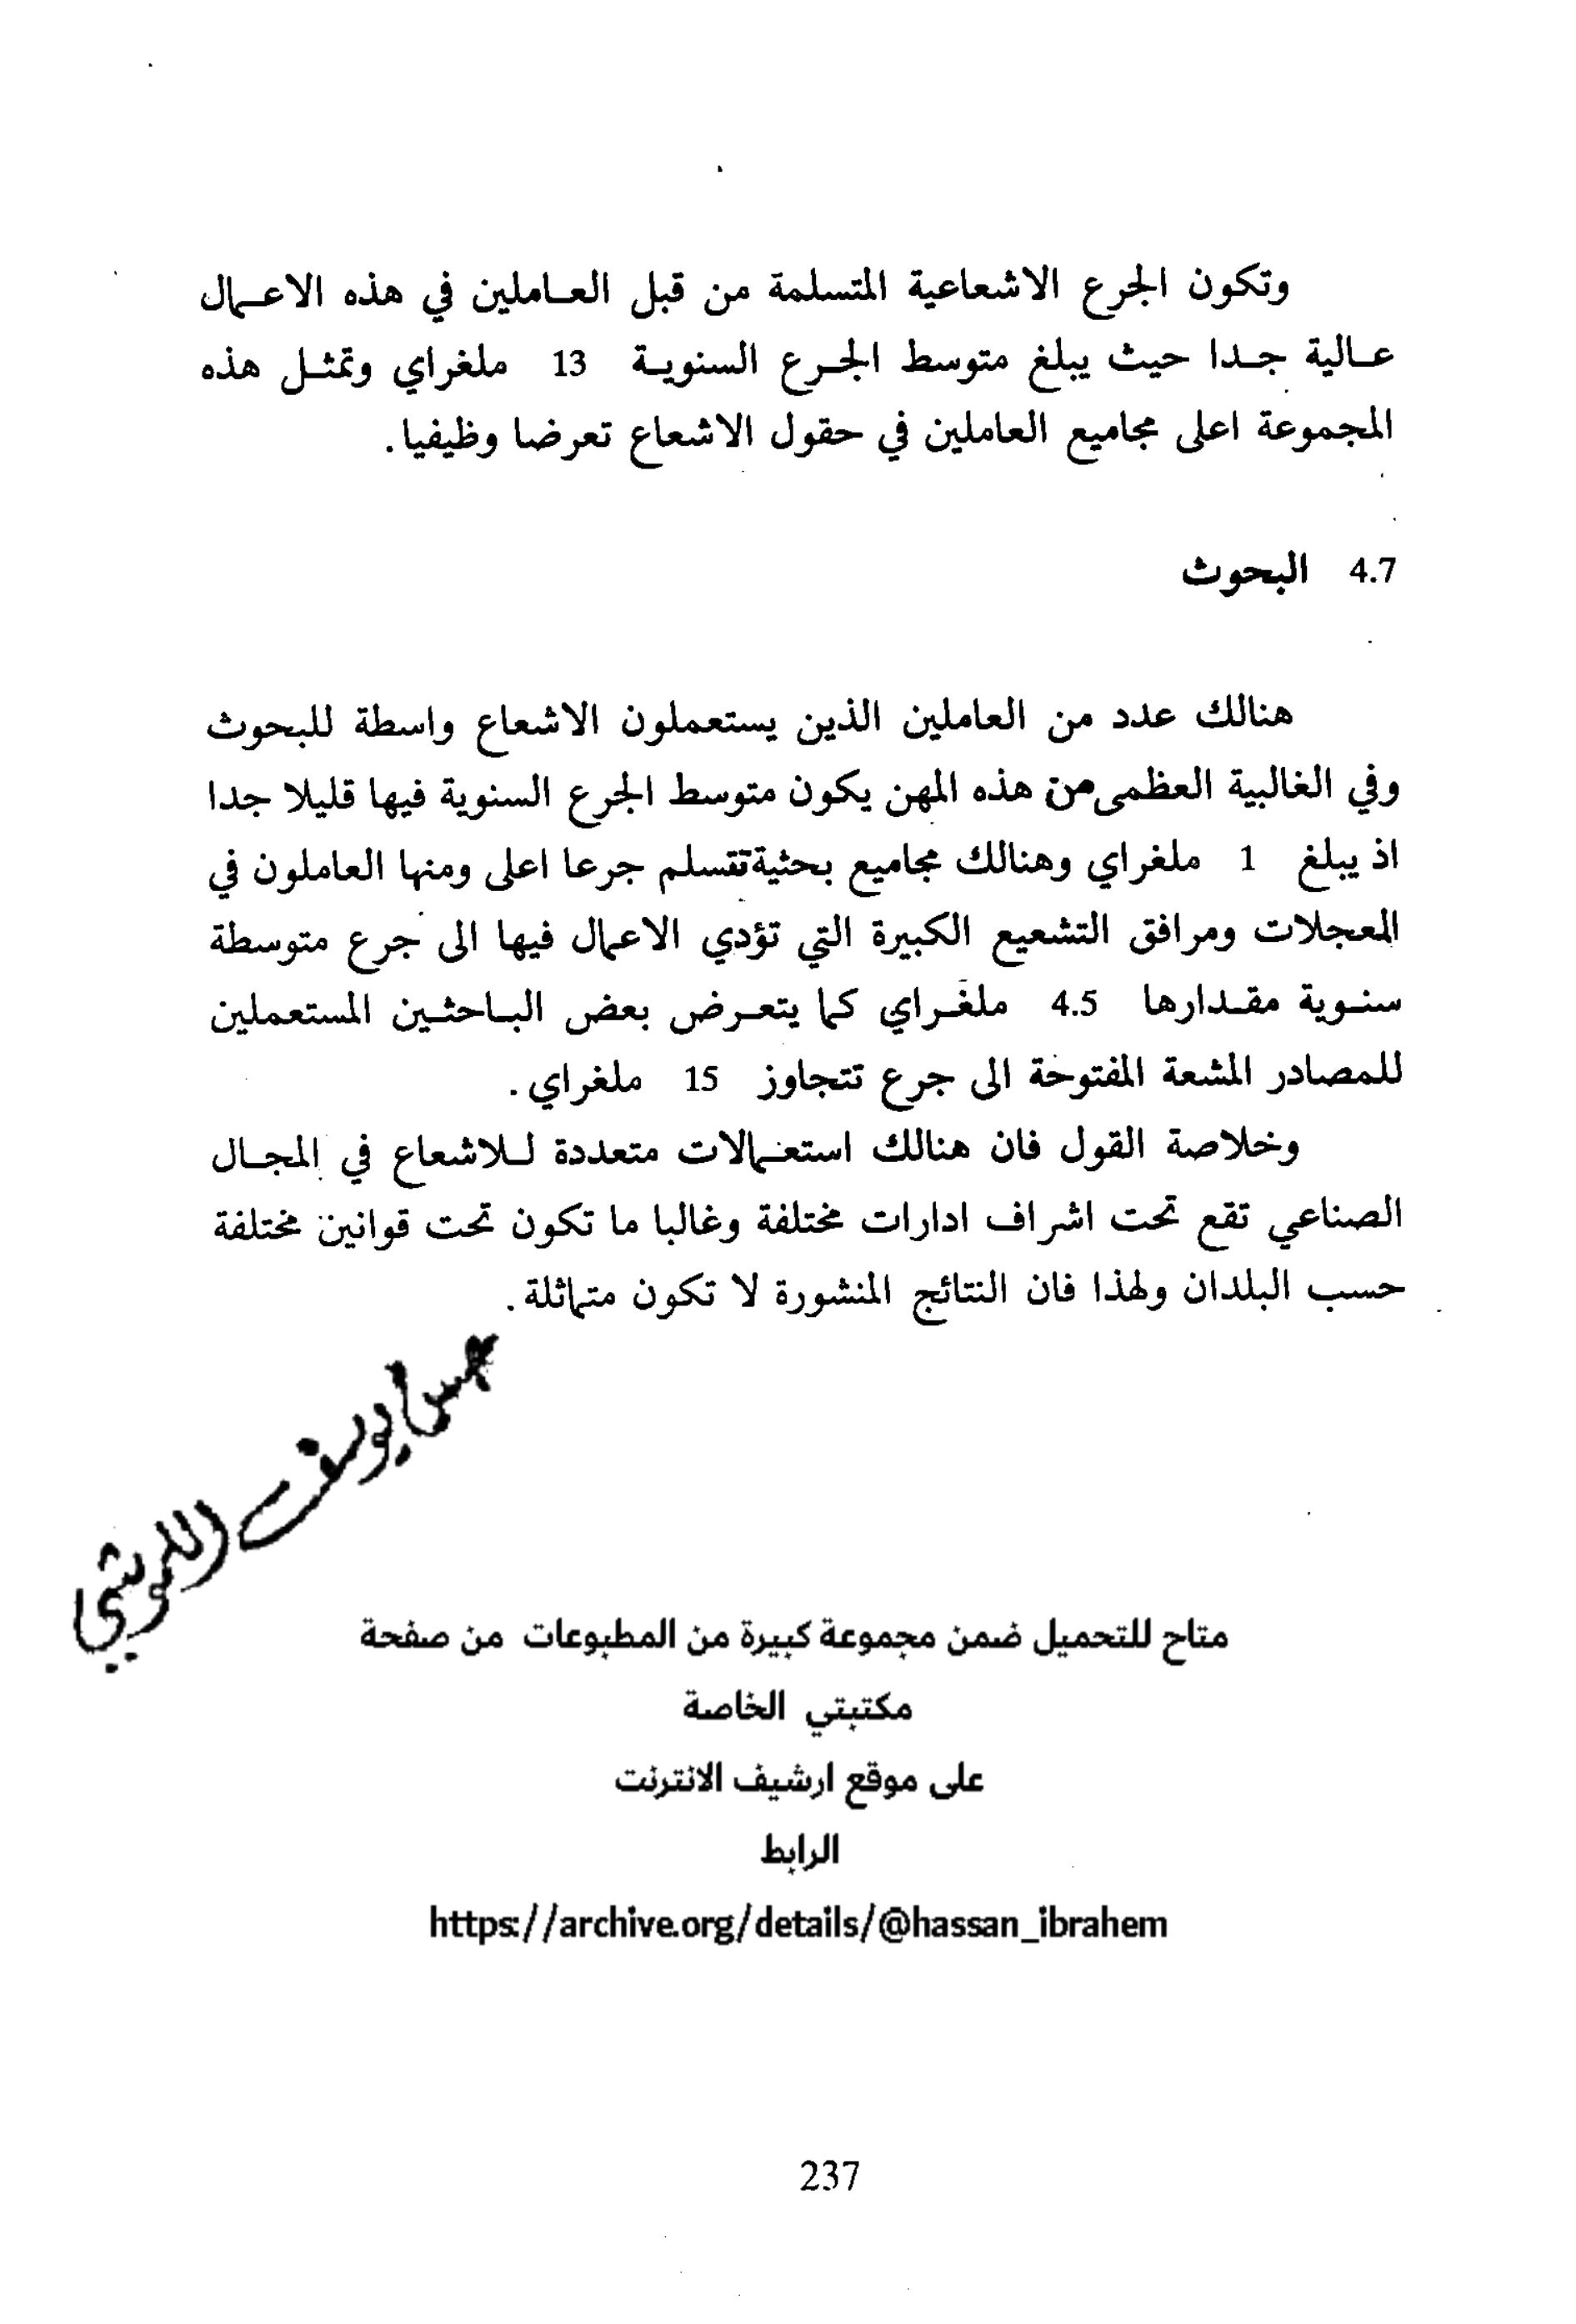 وتكون الجرع الاشعاعية المتسلمة من قبل العاملين في هذه الاعمال
عالية جدا حيث يبلغ متوسط الجرع السنوية 13 ملغراي وتمثل هذه
المجموعة اعلى مجاميع العاملين في حقول الاشعاع تعرضا وظيفيا.
4.7 البحوث
هنالك عدد من العاملين الذين يستعملون الاشعاع واسطة للبحوث
وفي الغالبية العظمى من هذه المهن يكون متوسط الجرع السنوية فيها قليلا جدا
اذ يبلغ 1 ملغراي وهنالك مجاميع بحثية تتسلم جرعا اعلى ومنها العاملون في
المعجلات ومرافق التشعيع الكبيرة التي تؤدي الاعمال فيها الى جرع متوسطة
سنوية مقدارها 4.5 ملغراي كما يتعرض بعض الباحثين المستعملين
للمصادر المشعة المفتوحة الى جرع تتجاوز 15 ملغراي.
وخلاصة القول فان هنالك استعمالات متعددة للاشعاع في المجال
الصناعي تقع تحت اشراف ادارات مختلفة وغالبا ما تكون تحت قوانين مختلفة
حسب البلدان ولهذا فان النتائج المنشورة لا تكون متماثلة.
متاح للتحميل ضمن مجموعة كبيرة من المطبوعات من صفحة
مكتبتي الخاصة
على موقع ارشيف الانترنت
الرابط
https://archive.org/details/@hassan_ibrahem
237